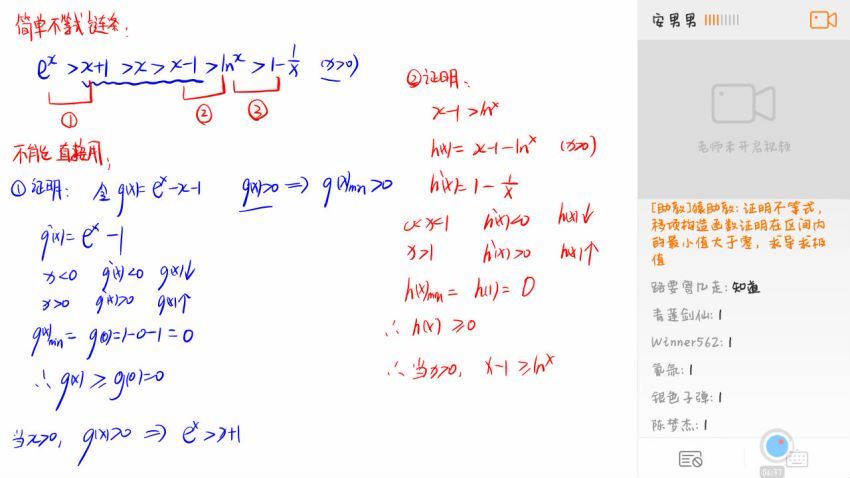 简单不等式链条：
e^x > x+1 > x > x-1 > ln^x > 1-1/x (x>0)
① ② ③
不能直接用；
① 证明： 令 g(x)= e^x-x-1 g(x)>0 ⟹ g(x)min>0
g'(x)= e^x-1
x<0 g'(x)<0 g(x)↓
x>0 g'(x)>0 g(x)↑
g(x)min = g(0)=1-0-1=0
∴ g(x) ≥ g(0)=0
当x>0, g(x)>0 ⟹ e^x>x+1
② 证明：
x-1>ln^x
h(x)= x-1-ln^x (x>0)
h'(x)= 1-1/x
0<x<1 h'(x)<0 h(x)↓
x>1 h'(x)>0 h(x)↑
h(x)min = h(1) = 0
∴ h(x) ≥0
∴ 当x>0, x-1≥ln^x
安男男
老师未开启视频
证明不等式，
移项构造函数证明在区间内
的最小值大于零，求导求极
值
知道
青莲剑仙: 1
Winner562: 1
氢氛: 1
银色子弹: 1
陈梦杰: 1
06:37